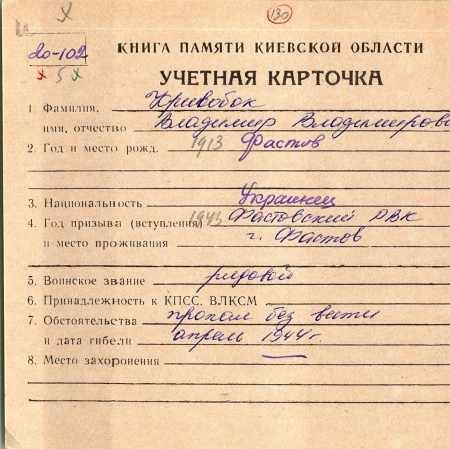 130
до-102
х 5 х
КНИГА ПАМЯТИ КИЕВСКОЙ ОБЛАСТИ
УЧЕТНАЯ КАРТОЧКА
1. Фамилия, Кривобок
имя, отчество Владимир Владимирови
2. Год и место рожд. 1913 Фастов
3. Национальность Украинец
4. Год призыва (вступления) 1943 Фастовский РВК
и место проживания г. Фастов
5. Воинское звание рядовой
6. Принадлежность к КПСС, ВЛКСМ
7. Обстоятельства пропал без вести
и дата гибели апрель 1944 г.
8. Место захоронения